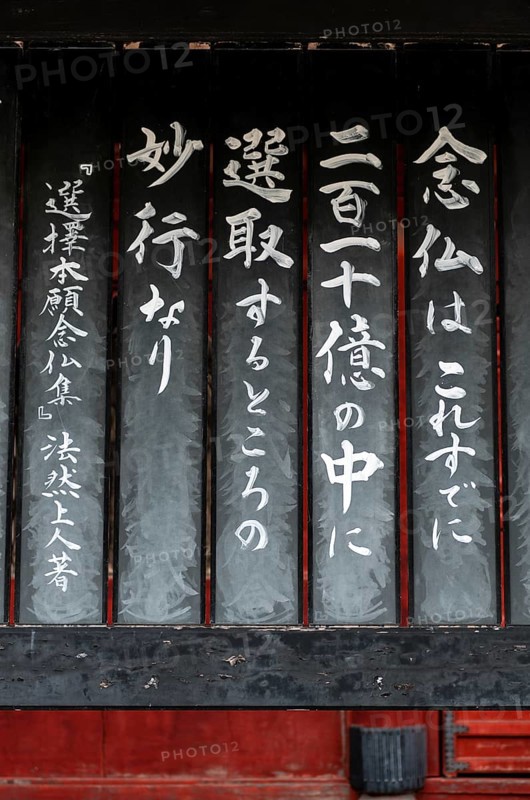 念仏は これすでに
二百一十億の中に
選取するところの
妙行なり
『選擇本願念仏集』 法然上人著
PHOTO12